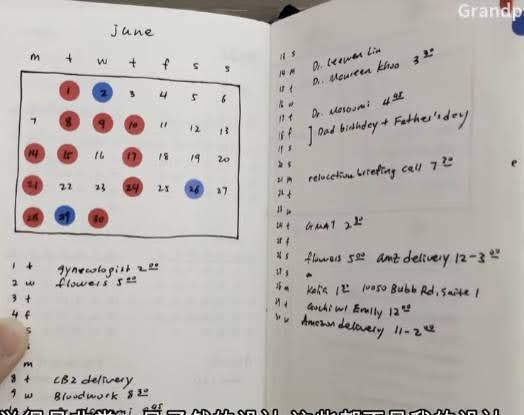 Grandp
june
m t w t f s s
1 2 3 4 5 6
7 8 9 10 11 12 13
14 15 16 17 18 19 20
21 22 23 24 25 26 27
28 29 30
1 t gynecologist 2 00
2 w flowers 5 00
3 t
4 f
s
m
8 t CB2 delivery
9 w Bloodwork 8 30
13 s
14 m Dr. Leewen Lin
15 t Dr. Maureen Khoo 3 30
16 w
17 t Dr. Masoumi 4 45
18 f ] Dad birthday + Father's day
19 s
20 s
21 m relocation briefing call 7 30
22 t
23 w
24 t GMAT 2 30
25 f
26 s flowers 5 00 amz delivery 12-3 00
27 s
28 m 10050 Bubb Rd, Suite 1
29 t Gochi w/ Emily 12 00
30 w Amazon delivery 11-2 00